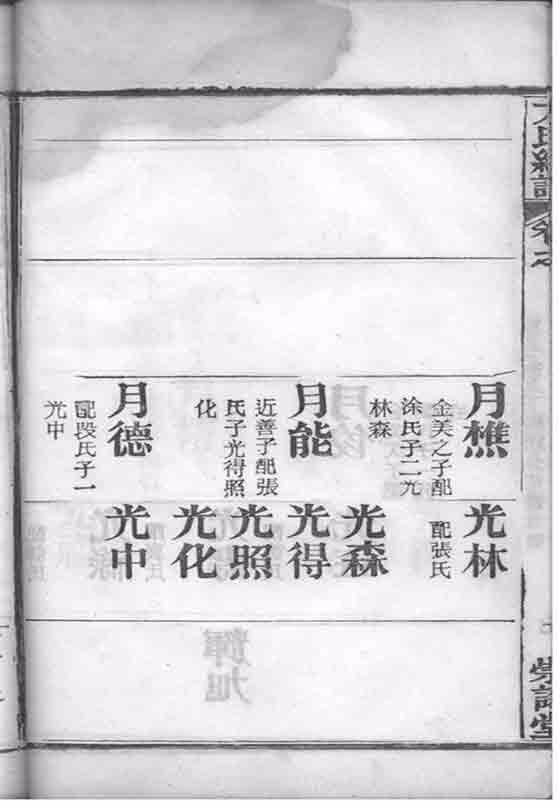 月樵
金美之子配
涂氏子二光
林森
月能
近善子配張
氏子光得照
化
月德
配段氏子一
光中
光林
配張氏
光森
光得
光照
光化
光中